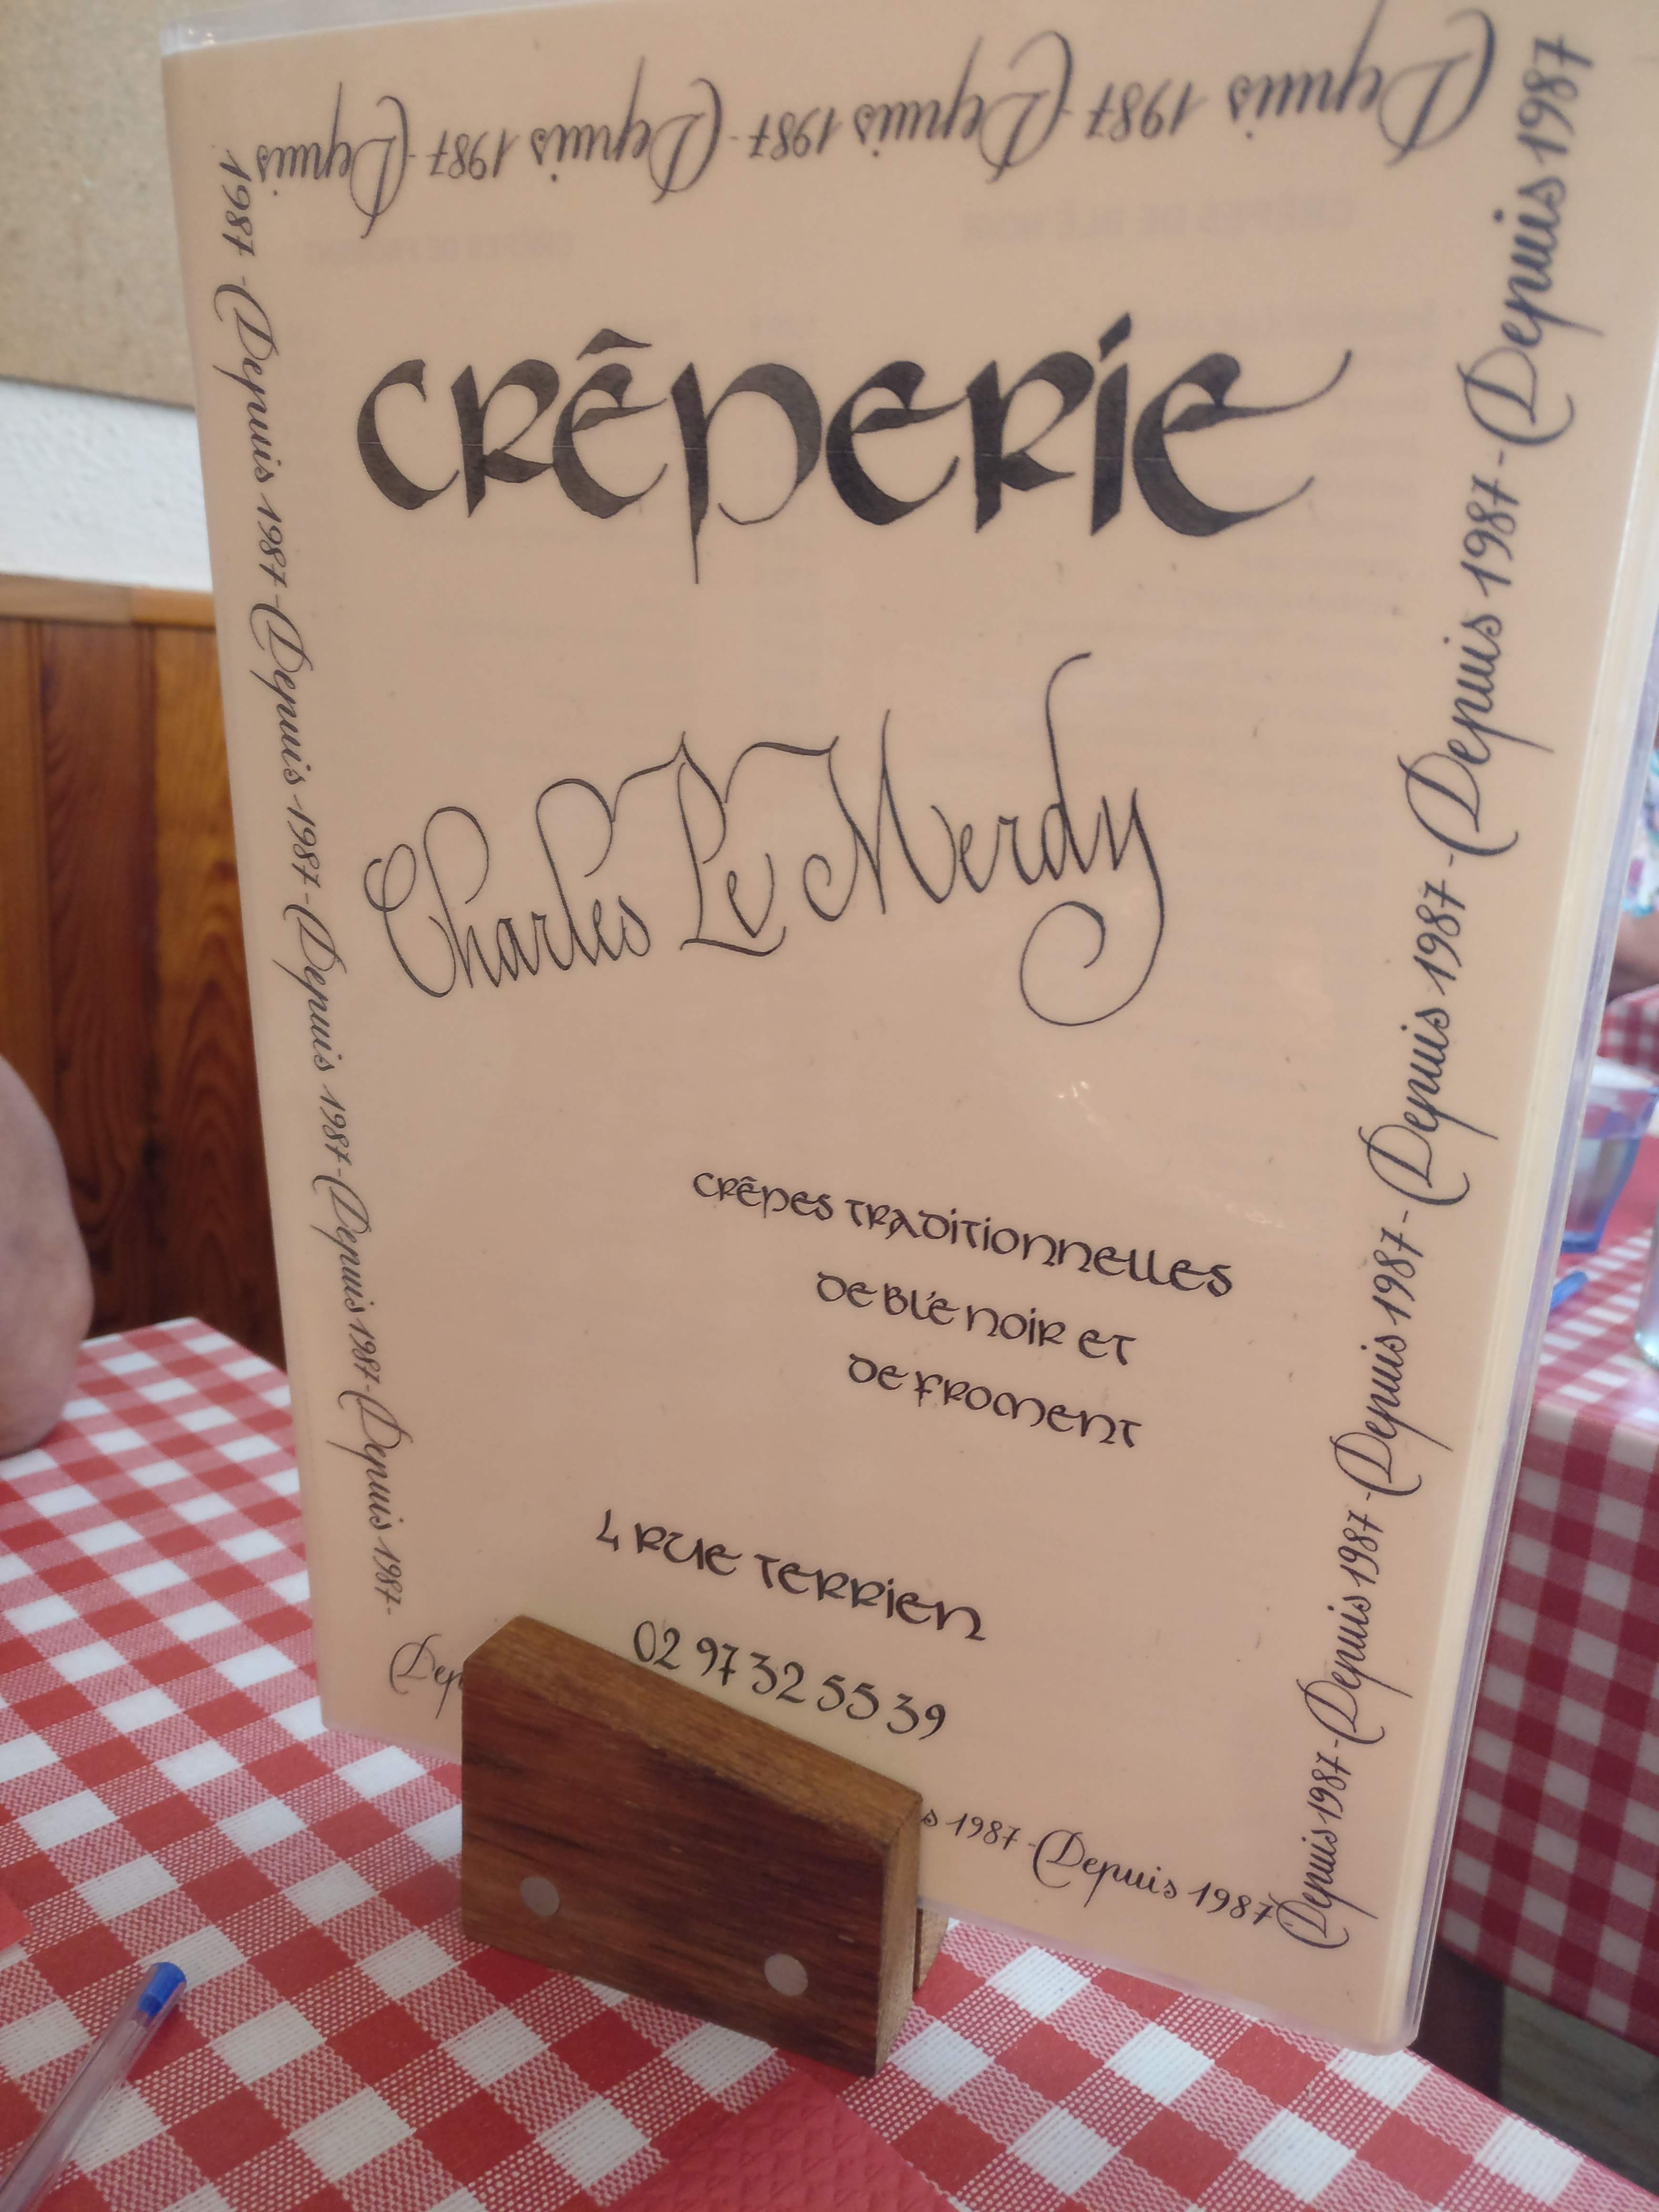 Depuis 1987 - Depuis 1987 - Depuis 1987 - Depuis
1987 - Depuis 1987 - Depuis 1987 - Depuis 1987 - Depuis 1987 - Depuis 1987 -
CRÊPERIE
Charles Le Merdy
CRÊPES TRADITIONNELLES
DE BLÉ NOIR ET
DE FROMENT
4 RUE TERRIEN
02 97 32 55 39
1987 - Depuis 1987
Depuis 1987 - Depuis 1987 - Depuis 1987 - Depuis 1987 - Depuis 1987 - Depuis 1987